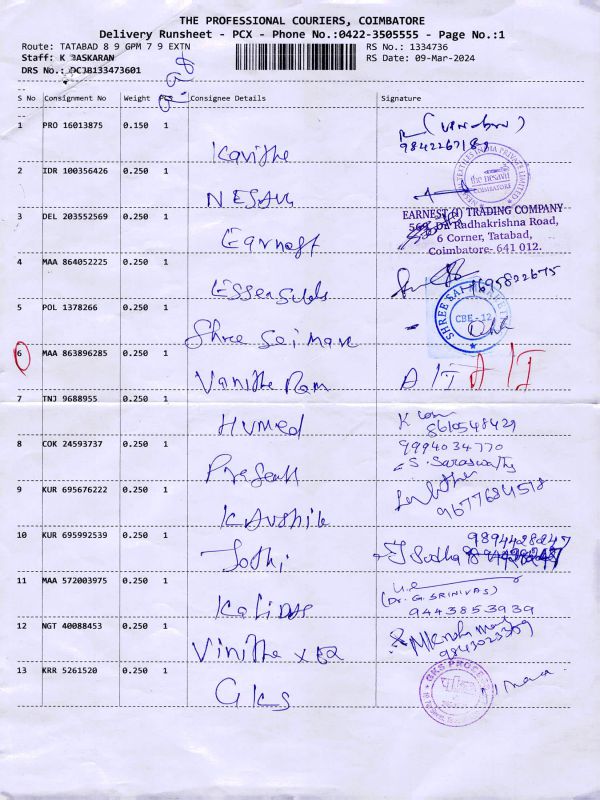 THE PROFESSIONAL COURIERS, COIMBATORE
Delivery Runsheet - PCX - Phone No.:0422-3505555 - Page No.:1
Route: TATABAD 8 9 GPM 7 9 EXTN
RS No.: 1334736
Staff: K BASKARAN
RS Date: 09-Mar-2024
DRS No.: DCJB133473601
S No Consignment No Weight Pcs Consignee Details Signature
1 PRO 16013875 0.150 1 Kavithe
2 IDR 100356426 0.250 1 NESAVU
the nesavu
COIMBATORE
3 DEL 203552569 0.250 1 Earnest
EARNEST (I) TRADING COMPANY
569, Dr. Radhakrishna Road,
6 Corner, Tatabad,
Coimbatore- 641 012.
4 MAA 864052225 0.250 1
7695822675
5 POL 1378266 0.250 1 Shree Sai
CBE - 12
6 MAA 863896285 0.250 1 Vanithe Ram
7 TNJ 9688955 0.250 1 Humed
8610548429
8 COK 24593737 0.250 1
9994034770
S. Saraswathy
9 KUR 695676222 0.250 1 Kaushik
9677684518
10 KUR 695992539 0.250 1 Jothi
9894428247
11 MAA 572003975 0.250 1
(Dr. G. SRINIVAS)
9443853939
12 NGT 40088453 0.250 1 Vinithe
9843023309
13 KRR 5261520 0.250 1 GKS